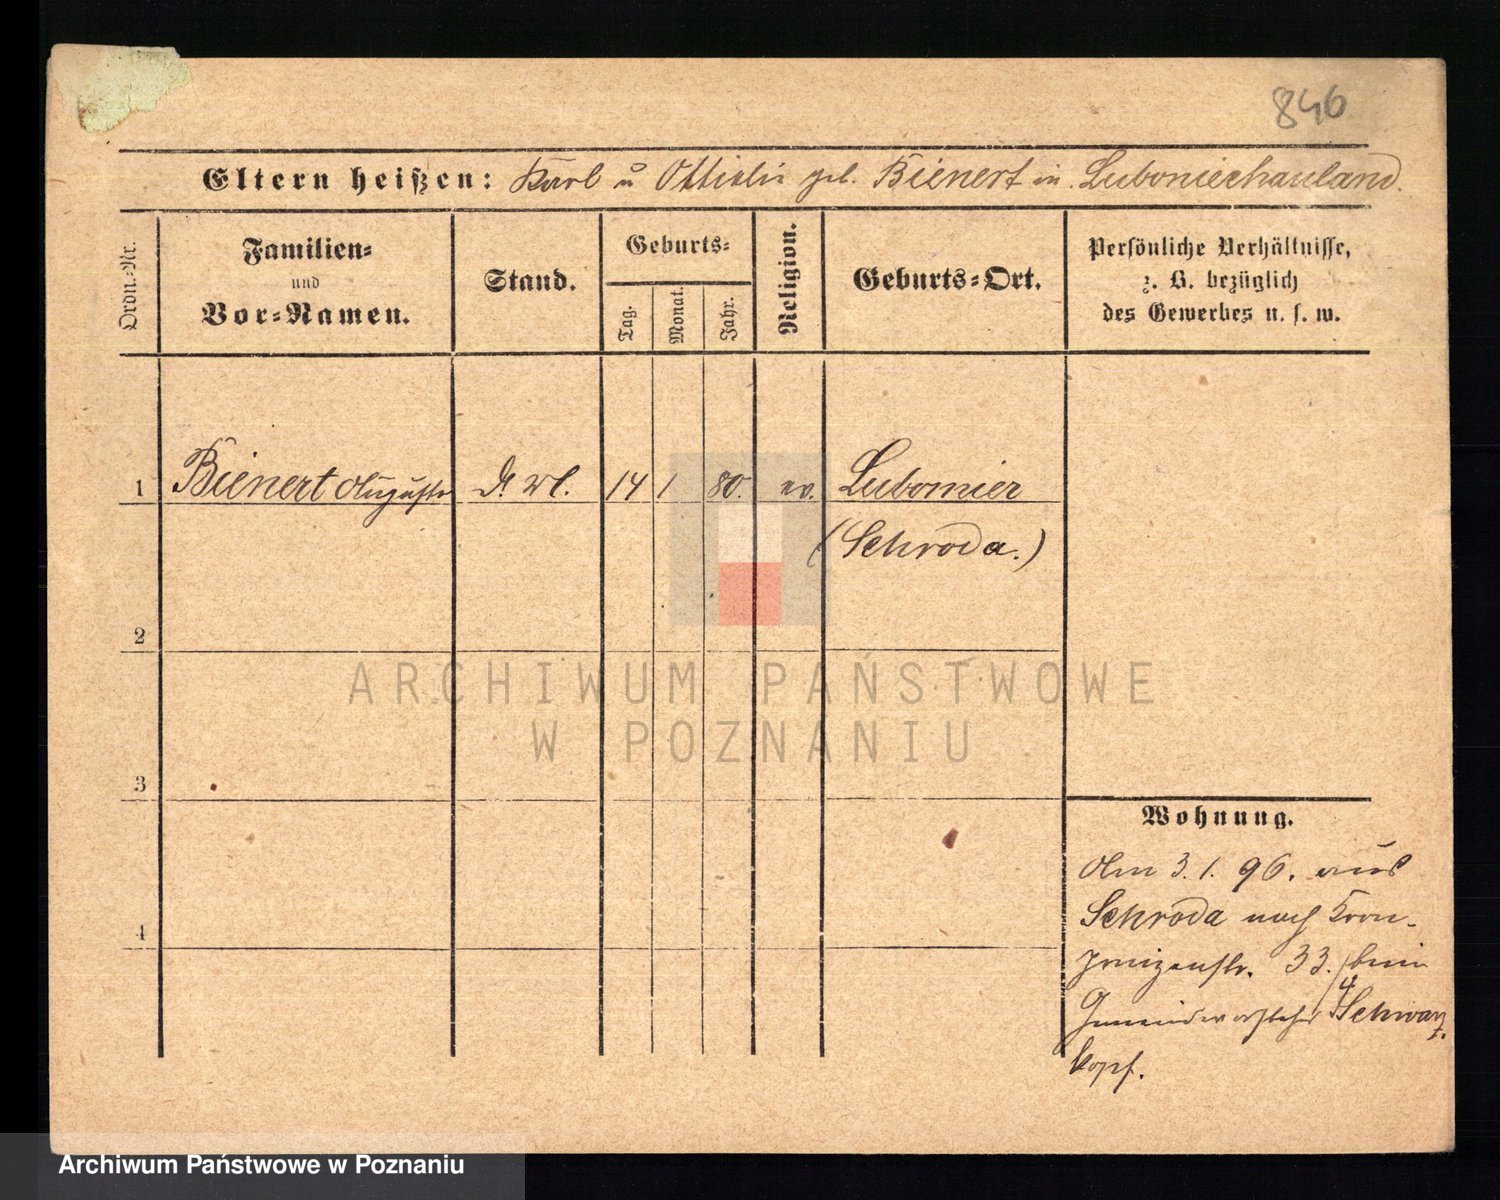 846
Eltern heißen: Karl u Ottilie geb. Bienert in Lubomierhauland.
Ordn.-Nr.
Familien-
und
Vor-Namen.
Stand.
Geburts-
Tag.
Monat.
Jahr.
Religion.
Geburts-Ort.
Persönliche Verhältnisse,
z. B. bezüglich
des Gewerbes u. s. w.
1 Bienert Auguste 14 1 80. ev. Lubomier
(Schroda.)
2
3
4
Wohnung.
Am 3.1.96. aus
Schroda nach Kron-
prinzenstr. 33. beim
Gemeindevorsteher Schwarz-
kopf.
ARCHIWUM PAŃSTWOWE
W POZNANIU
Archiwum Państwowe w Poznaniu